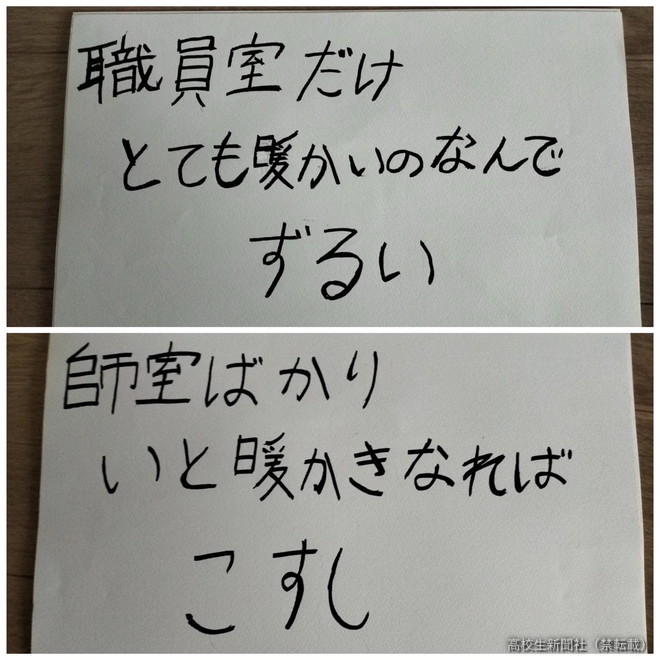 職員室だけ
とても暖かいのなんで
ずるい
師室ばかり
いと暖かきなれば
こすし
高校生新聞社（禁転載）